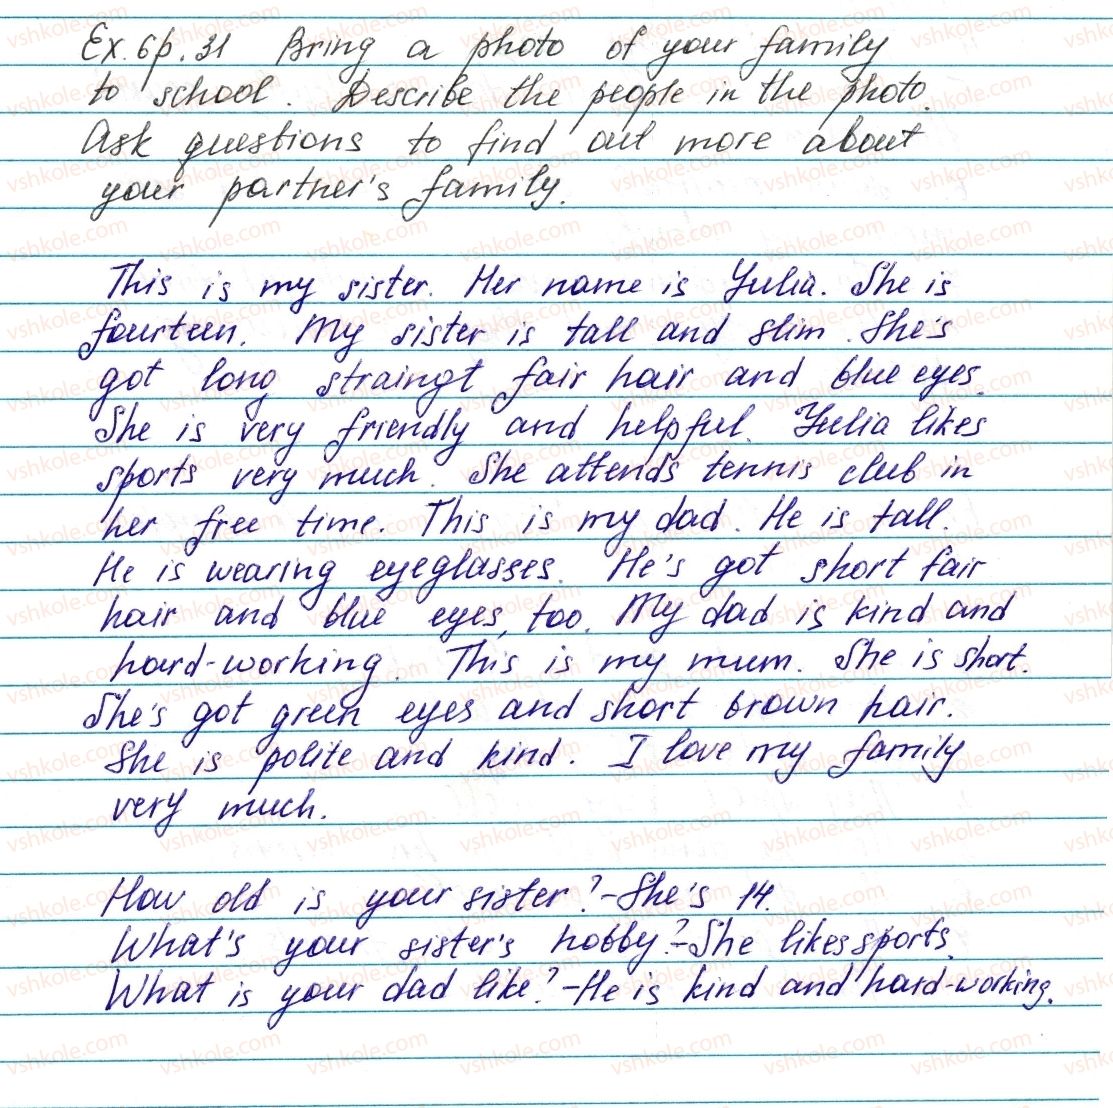 Ex. 6 p. 31 Bring a photo of your family
to school. Describe the people in the photo.
Ask questions to find out more about
your partner's family.
This is my sister. Her name is Yulia. She is
fourteen. My sister is tall and slim. She's
got long straingt fair hair and blue eyes.
She is very friendly and helpful. Yulia likes
sports very much. She attends tennis club in
her free time. This is my dad. He is tall.
He is wearing eyeglasses. He's got short fair
hair and blue eyes, too. My dad is kind and
hard-working. This is my mum. She is short.
She's got green eyes and short brown hair.
She is polite and kind. I love my family
very much.
How old is your sister? - She's 14.
What's your sister's hobby? - She likes sports.
What is your dad like? - He is kind and hard-working.